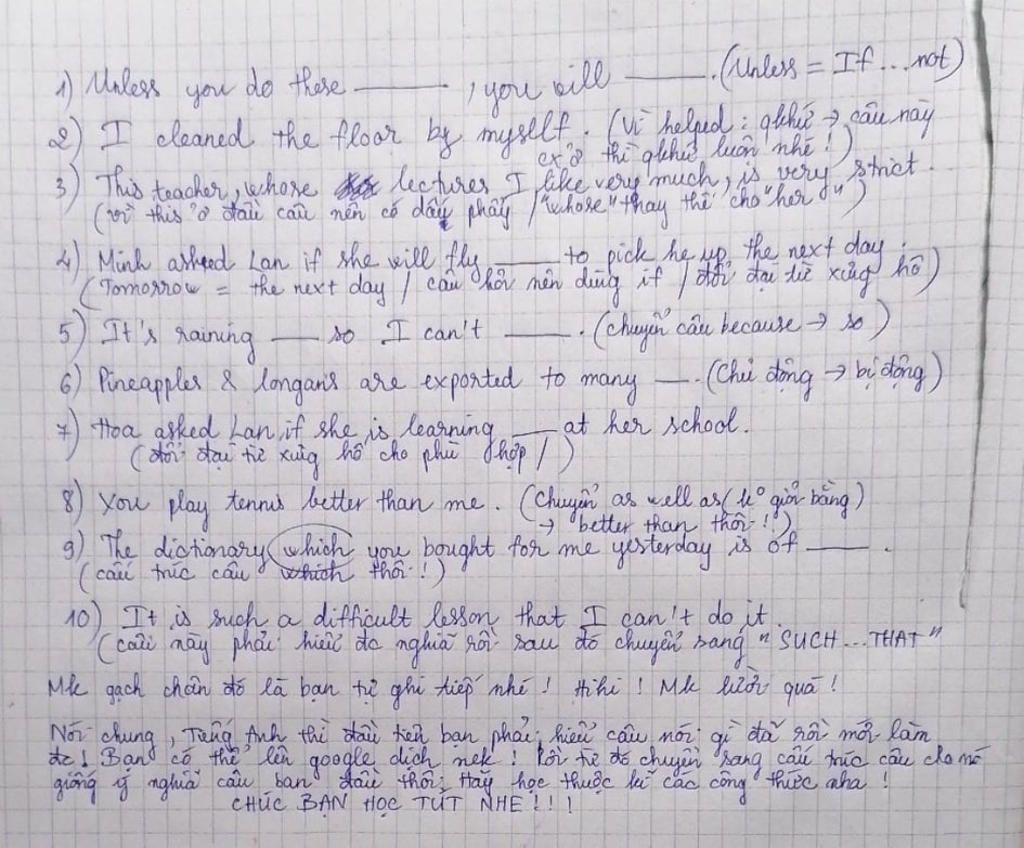 1) Unless you do these ______, you will ______. (Unless = If...not)
2) I cleaned the floor by myself. (Vì helped: qkhứ → câu này
cx ở thì qkhứ luôn nhé!)
3) This teacher, whose lectures I like very much, is very strict.
(vì this ở đầu câu nên có dấu phẩy / "whose" thay thế cho "her")
4) Minh asked Lan if she will fly ____ to pick he up the next day.
(Tomorrow = the next day / câu hỏi nên dùng if / đổi đại từ xưng hô)
5) It's raining ___ so I can't ____. (chuyển câu because → so)
6) Pineapples & longans are exported to many __. (Chủ động → bị động)
7) Hoa asked Lan if she is learning ___ at her school.
(đổi đại từ xưng hô cho phù hợp /)
8) You play tennis better than me. (Chuyển as well as (ko giỏi bằng)
→ better than thôi!)
9) The dictionary which you bought for me yesterday is of ____.
(cấu trúc câu which thôi!)
10) It is such a difficult lesson that I can't do it.
(câu này phải hiểu đc nghĩa rồi sau đó chuyển sang "SUCH...THAT"
Mk gạch chân đó là bạn tự ghi tiếp nhé! Hihi! Mk lười quá!
Nói chung, Tiếng Anh thì đầu tiên bạn phải hiểu câu nói gì đã rồi mới làm
đc! Bạn có thể lên google dịch nek! Rồi từ đó chuyển sang cấu trúc câu cho nó
giống ý nghĩa câu ban đầu thôi; Hãy học thuộc kĩ các công thức nha!
CHÚC BẠN HỌC TỐT NHÉ!!!